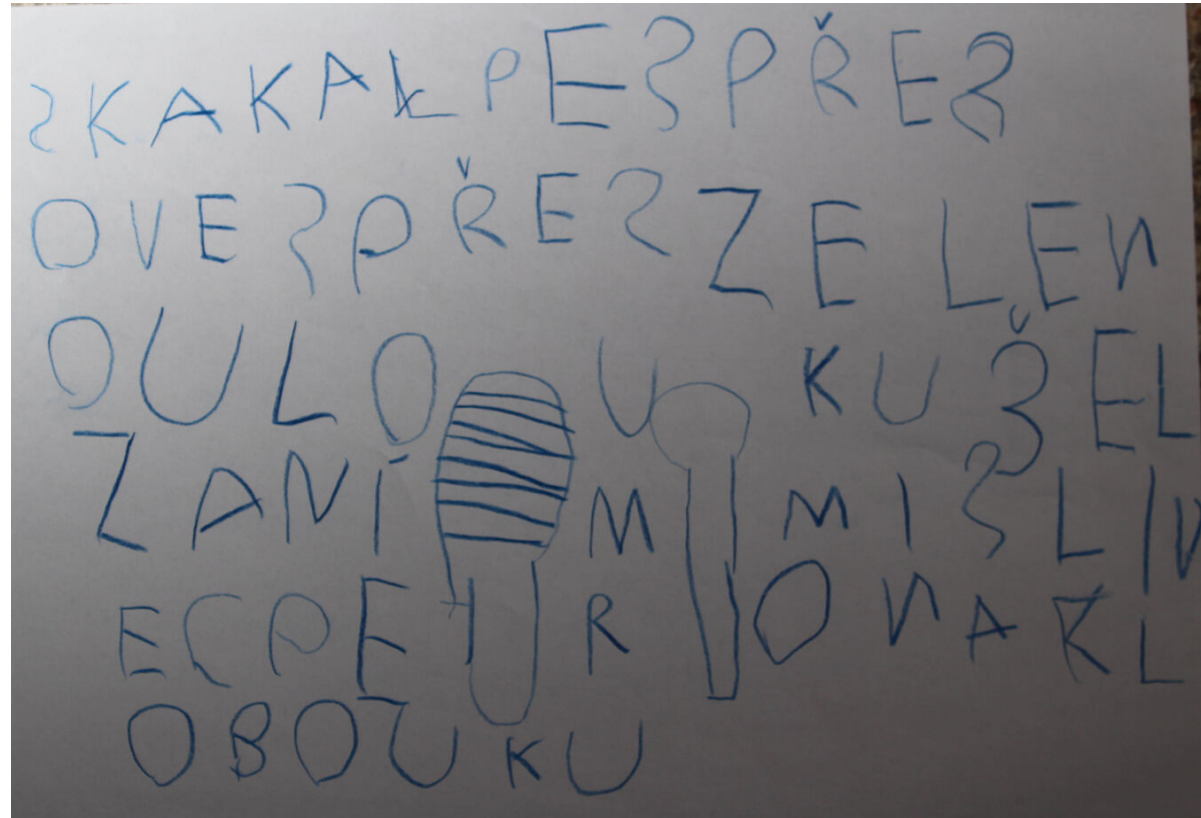 SKAKAL PES PŘES
OVES PŘES ZELEN
OU LOUKU ŠEL
ZA NÍM MISLIV
EC PERO NA KL
OBOUKU